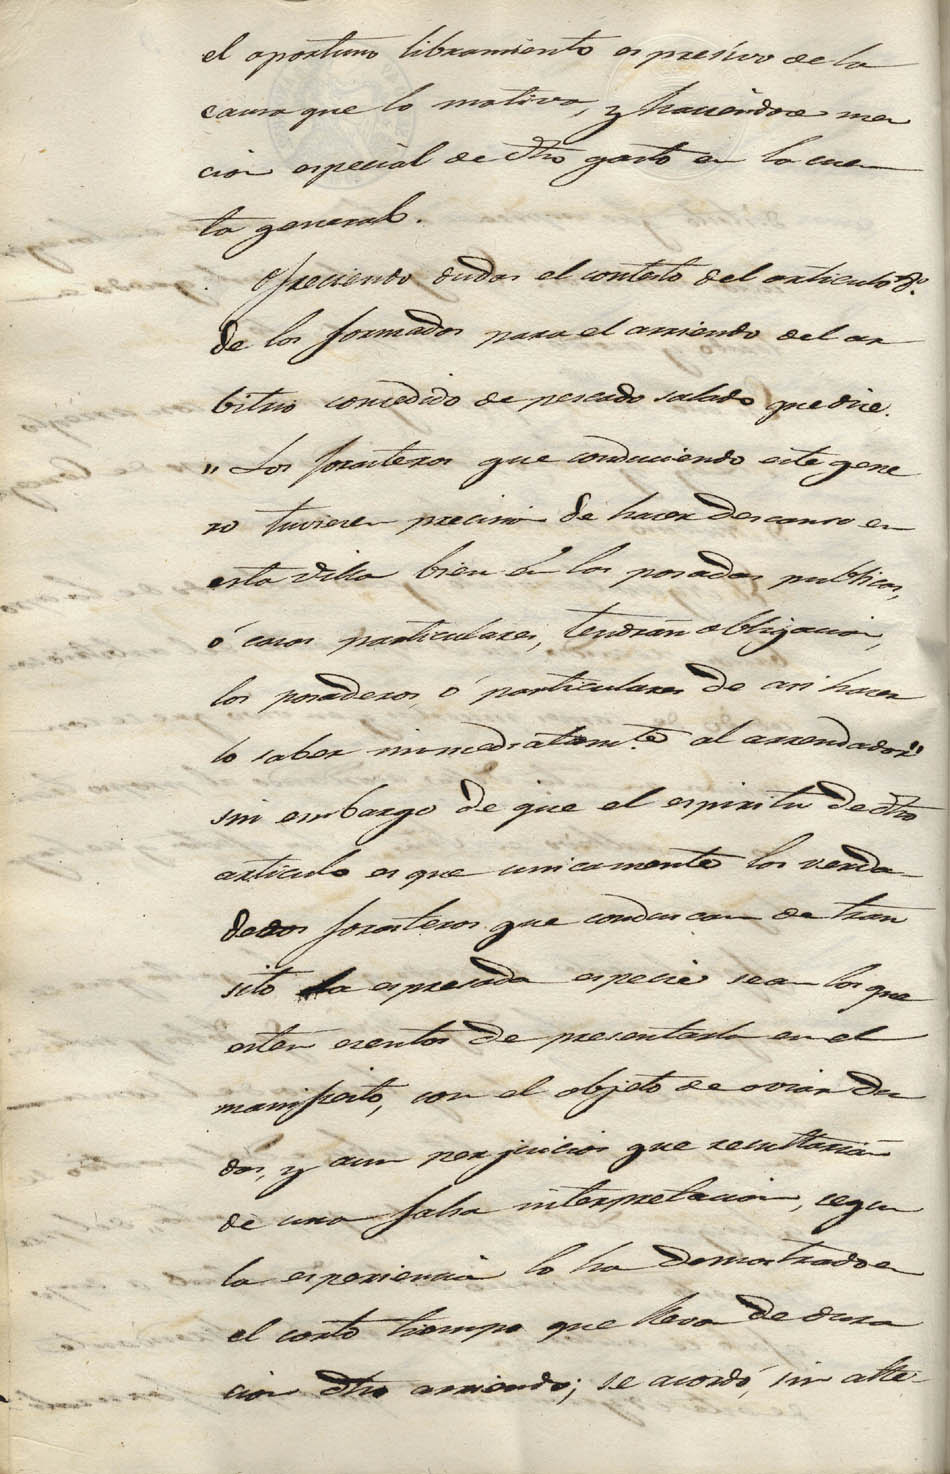 el oportuno libramiento espresivo de la
causa que lo motiva, y haciendose men
cion especial de dho gasto en la cuen
ta general.
Ofreciendo dudas el contesto del articulo
de los formados para el arriendo del ar
bitrio concedido de pescado salado que dice.
"Los forasteros que conduciendo este gene
ro tuviesen precision de hacer descanso en
esta Villa bien en las posadas publicas,
ó casas particulares, tendrán obligacion,
los posaderos, ó particulares de asi hacer
lo saber inmediatamte. al arrendador"
sin embargo de que el espiritu de dho
articulo es que unicamente los verda
deros forasteros que conduscan de tran
sito la espresada especie sean los que
esten esentos de presentarla en el
manifiesto, con el objeto de oviar du
das, y aun perjuicios que resultarian
de una falsa interpretacion, segun
la esperiencia lo ha demostrado en
el corto tiempo que lleva de dura
cion dho arriendo; se acordó, sin alte-